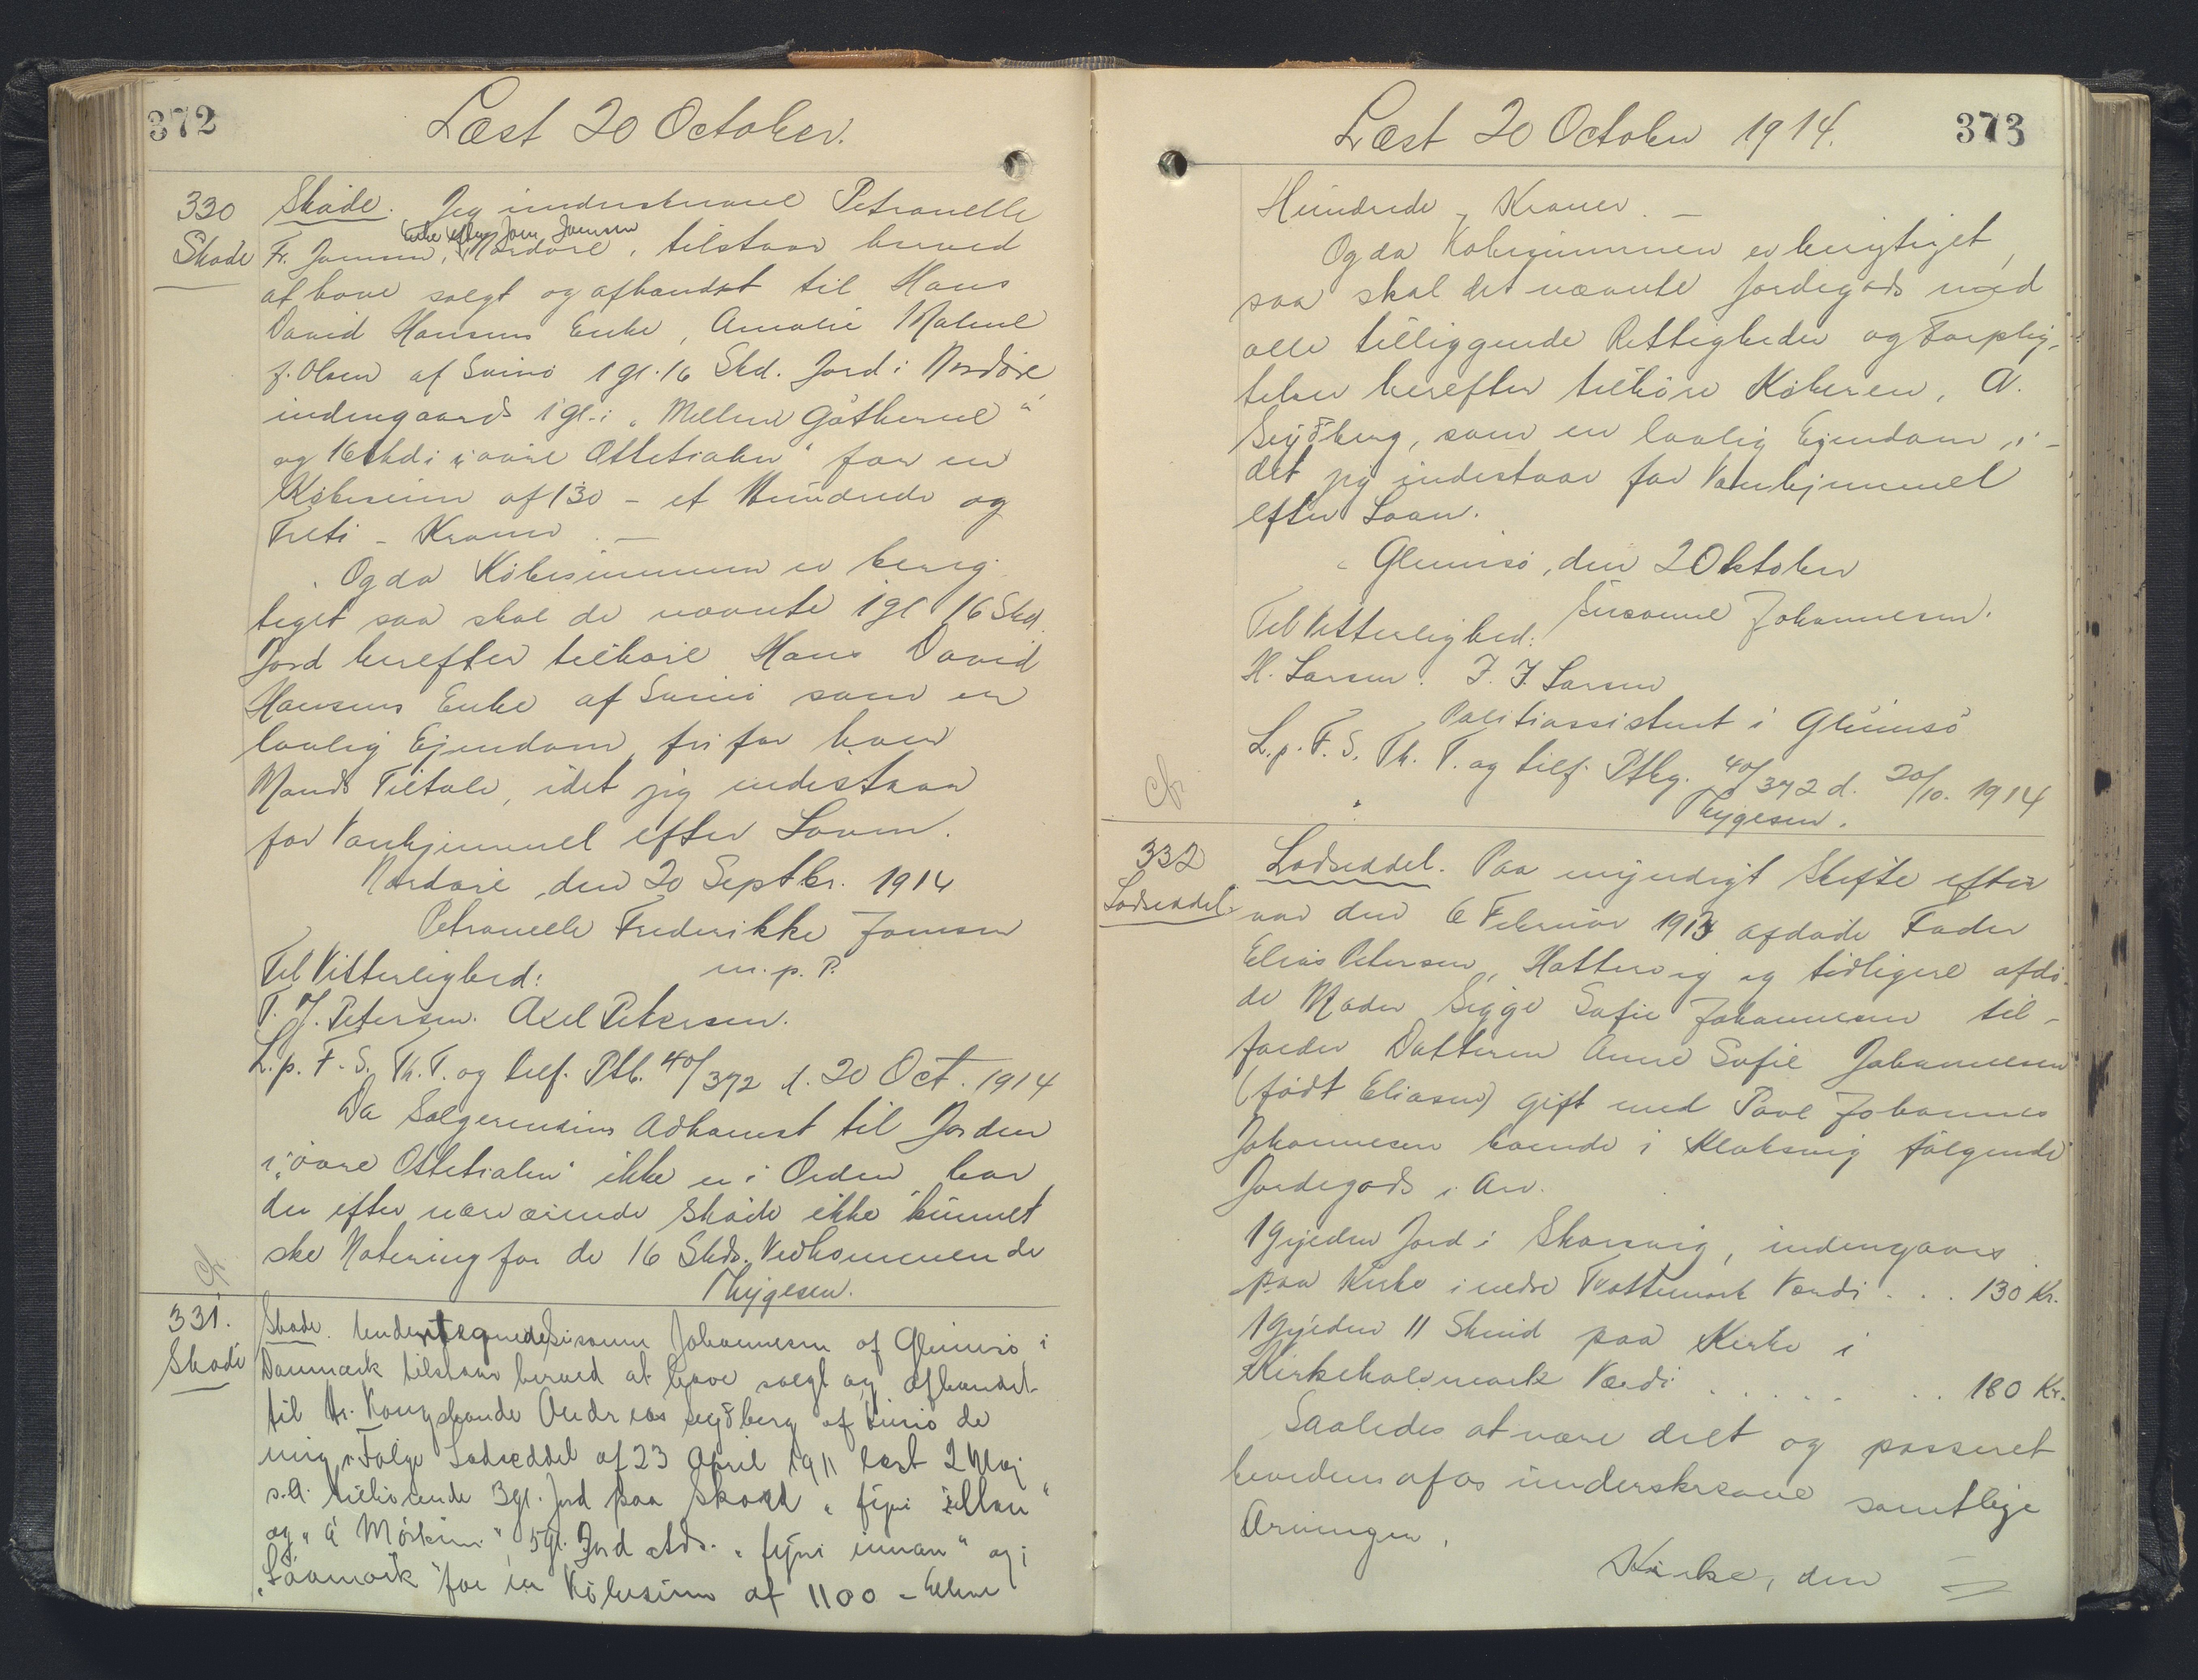 372
Læst 20 October.
330
Skøde
Skøde. Jeg underskrevne Petronelle
Enke efter Joen Joensen
Fr. Joensen, Nordøre, tilstaar herved
at have solgt og afhændet til Hans
David Hansens Enke, Amalie Malene
f. Olsen af Svinø 1 gl. 16 Skd. Jord i Nordøre
indengaards 1 gl. i „Mellem Gøtherne“
og 16 Skd i „øvre Ottetialen“ for en
Købesum af 130 – et Hundrede og
Treti – Kroner. –
Og da Købesummen er berig-
tiget saa skal de nævnte 1 gl 16 Skd.
Jord herefter tilhøre Hans David
Hansens Enke af Svinø som en
lovlig Ejendom, fri for hver
Mands Tiltale, idet jeg indestaar
for Vanhjemmel efter Loven.
Nordøre, den 20 Septbr. 1914
Petronelle Frederikke Joensen
m. p. P.
Til Vitterlighed:
T. J. Petersen. Axel Petersen.
L. p. F. S. Th. T. og tilf. Ptb. 40/372 d. 20 Oct. 1914
Da Sælgerindens Adkomst til Jorden
i „øvre Ottetialen“ ikke er i Orden, har
der efter nærværende Skøde ikke kunnet
ske Notering for de 16 Skds. Vedkommende
Thygesen.
331.
Skøde
Skøde. Undertegnede Susanne Johannesen af Glumsø i
Danmark tilstaar herved at have solgt og afhændet
til Hr. Kongsbonde Andreas Seyðberg af Kunø de
mig i Følge Lodseddel af 23 April 1911 læst 2 Maj
s. A. tilhørende 3 gl. Jord paa Skaard „fyri uttan“
og „á Mórkini“, 5 gl. Jord stds. „fyri innan“ og i
„Lóamørk“ for en Købesum af 1100 – Elleve
Læst 20 October 1914.
373
Hundrede – Kroner. –
Og da Købesummen er berigtiget,
saa skal det nævnte Jordegods med
alle tilliggende Rettigheder og Forplig-
telser herefter tilhøre Køberen, A.
Seyðberg, som en lovlig Ejendom, i-
det jeg indestaar for Vanhjemmel
efter Loven.
Glumsø, den 2 Oktober
Susanne Johannesen.
Til Vitterlighed:
H. Larsen. J. J. Larsen
Politiassistent i Glumsø
L. p. F. S. Th. T. og tilf. Ptbg. 40/372 d. 20/10. 1914
Thygesen.
332
Lodseddel
Lodseddel. Paa myndigt Skifte efter
vor den 6 Februar 1913 afdøde Fader
Elias Petersen, Hattervig og tidligere afdø-
de Moder Sigge Sofie Johannesen til-
falder Datteren Anne Sofie Johannesen
(født Eliasen) gift med Poul Johannes
Johannesen boende i Klaksvig følgende
Jordegods i Arv.
1 Gylden Jord i Skarsvig, indengaards
paa Kirke i nedre Trøttemørk Værdi . . . 130 Kr.
1 Gylden 11 Skind paa Kirke i
Kirkeholsmørk Værdi . . . . . . 180 Kr.
Saaledes at være delt og passeret
bevidnes af os underskrevne samtlige
Arvinger.
Kirke, den